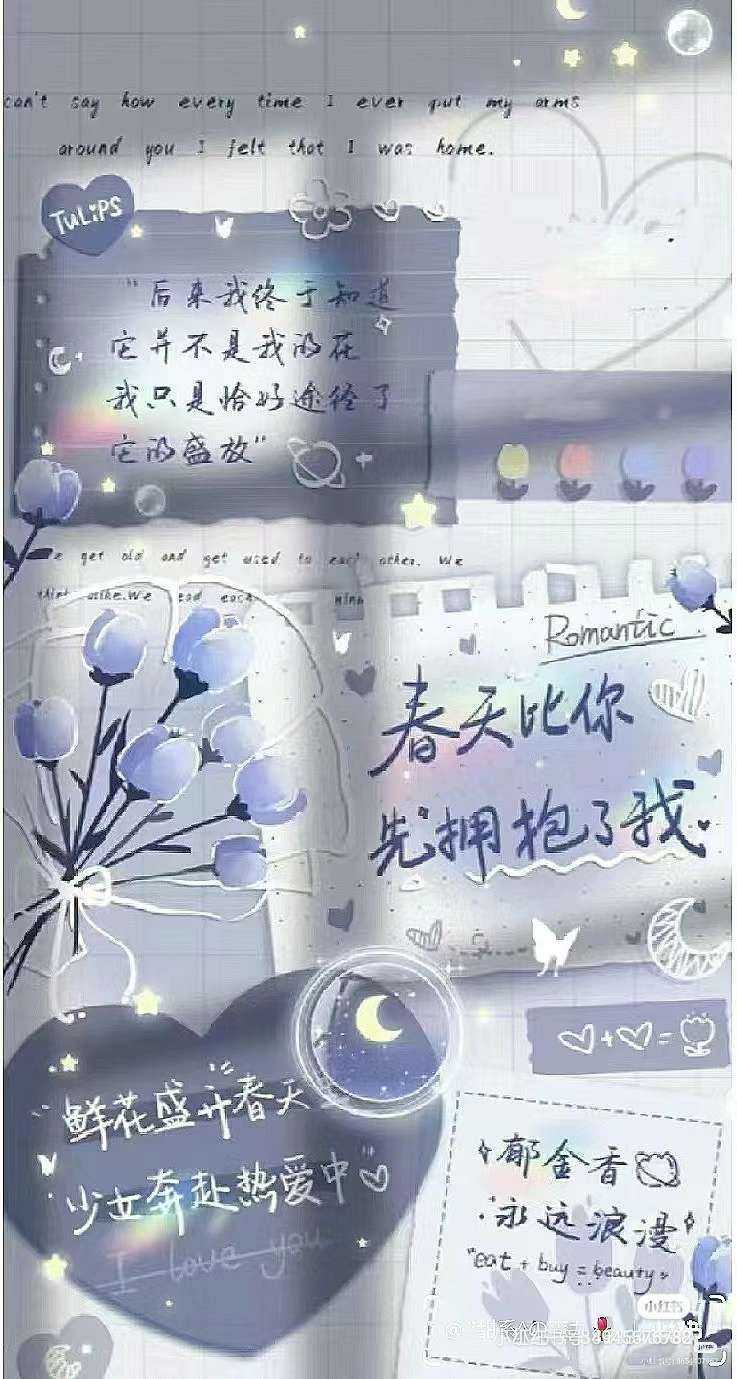 can't say how every time I ever put my arms
around you I felt that I was home.
TuLiPS
"后来我终于知道
它并不是我的花
我只是恰好途径了
它的盛放"
get old and get used to each other. We
think alike. We read each mind
Romantic
春天比你
先拥抱了我
鲜花盛开春天
少女奔赴热爱中
I love you
郁金香
永远浪漫
"eat + buy = beauty"
小红书